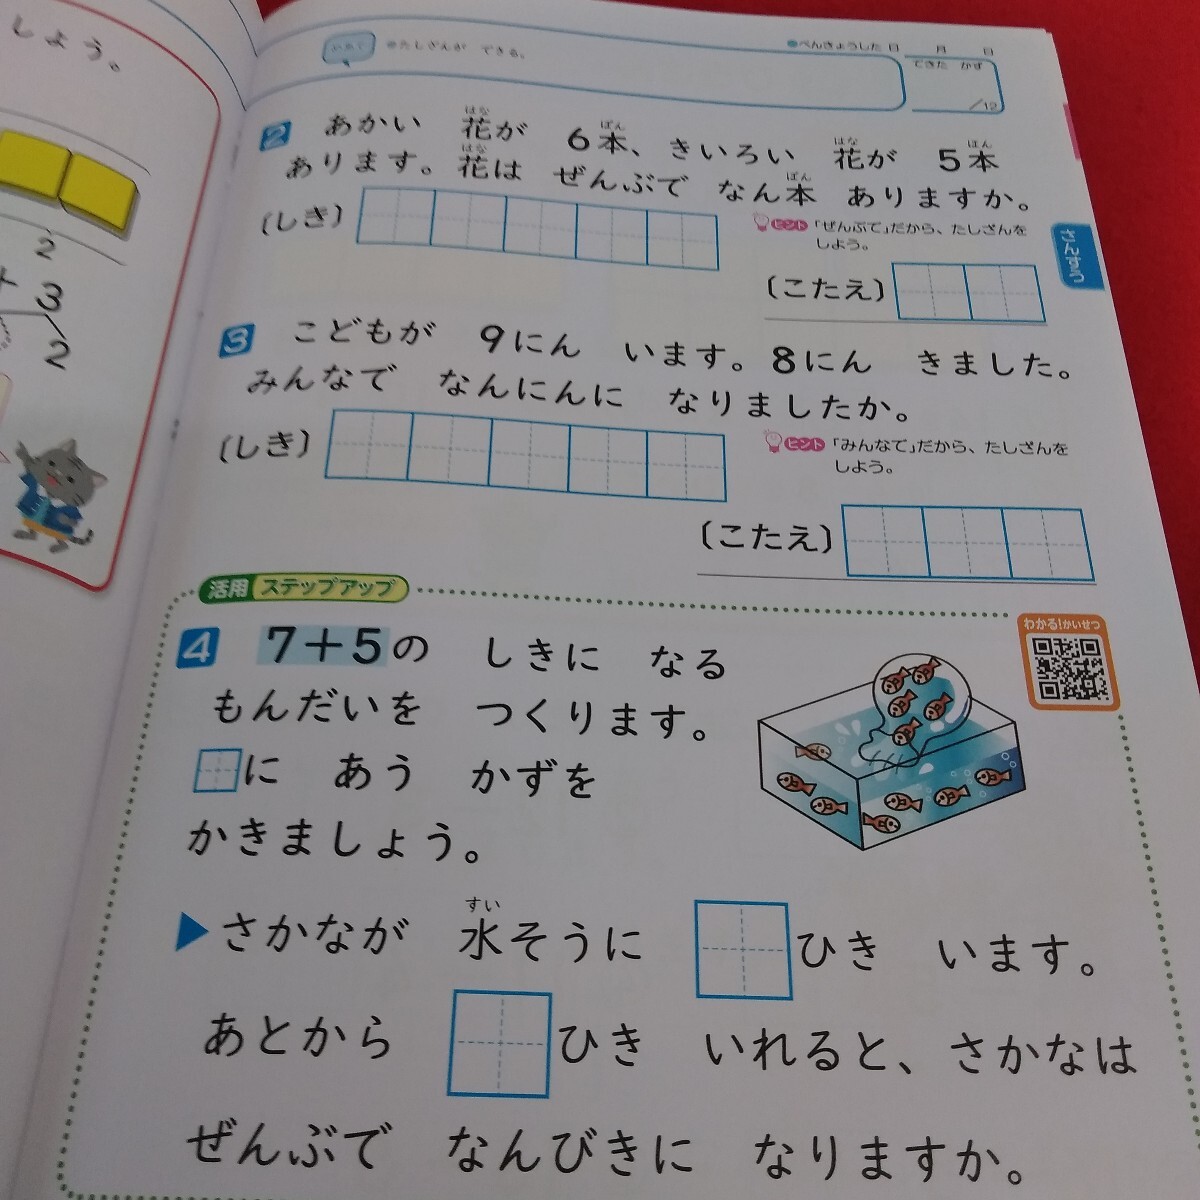 しよう。
2
+ 3
2
めあて
たしざんが できる。
べんきょうした 日 月 日
できた かず
/12
2 あかい 花が 6本、きいろい 花が 5本
はな ぽん はな ほん
あります。花は ぜんぶで なん本 ありますか。
はな ぼん
(しき)
ヒント 「ぜんぶで」だから、たしざんを
しよう。
(こたえ)
さんすう
3 こどもが 9にん います。8にん きました。
みんなで なんにんに なりましたか。
(しき)
ヒント 「みんなで」だから、たしざんを
しよう。
(こたえ)
活用 ステップアップ
わかる!かいせつ
4 7+5の しきに なる
もんだいを つくります。
□に あう かずを
かきましょう。
▶さかなが 水そうに □ひき います。
すい
あとから □ひき いれると、さかなは
ぜんぶで なんびきに なりますか。